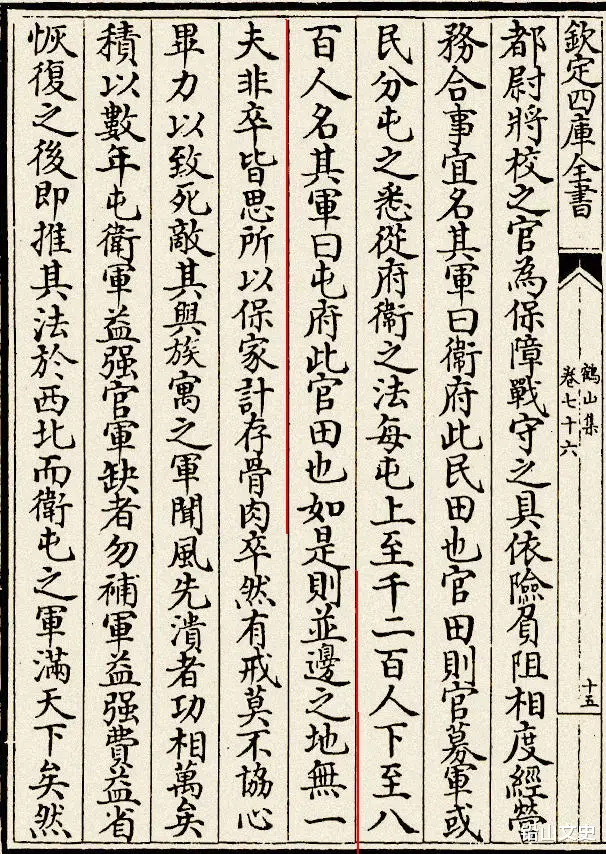 欽定四庫全書
鶴山集
卷七十六
十五
都尉將校之官為保障戰守之具依險負阻相度經營
務合事宜名其軍曰衛府此民田也官田則官募軍或
民分屯之悉從府衛之法每屯上至千二百人下至八
百人名其軍曰屯府此官田也如是則並邊之地無一
夫非卒皆思所以保家計存骨肉卒然有戒莫不協心
畢力以致死敵其與族寓之軍聞風先潰者功相萬矣
積以數年屯衛軍益强官軍缺者勿補軍益强費益省
恢復之後即推其法於西北而衛屯之軍滿天下矣然
鉛山文史